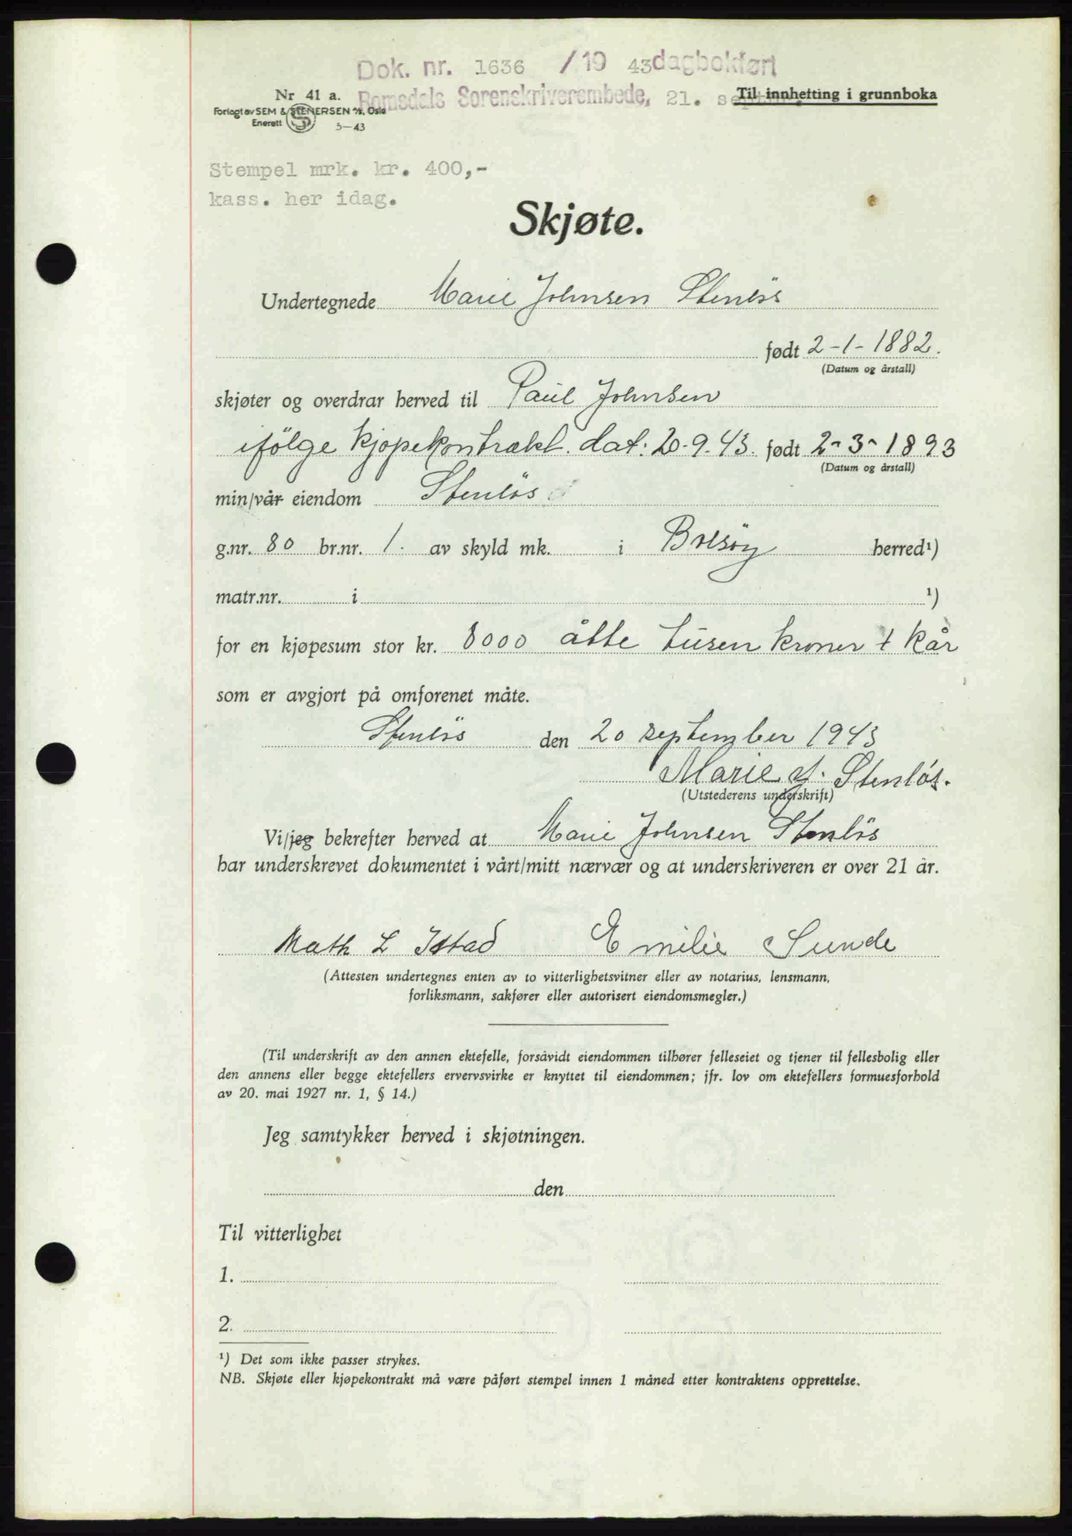 Dok. nr. 1636 /19 43 dagbokført
Nr 41 a. Romsdals Sorenskriverembede, 21. septbr. Til innhefting i grunnboka
Forlagt av SEM & STENERSEN A/S, Oslo
Enerett S 5-43
Stempel mrk. kr. 400,-
kass. her idag.
Skjøte.
Undertegnede Marie Johnsen Stenløs
født 2-1-1882.
(Datum og årstall)
skjøter og overdrar herved til Paul Johnsen
ifølge kjøpekontrakt. dat: 20-9-43. født 2-3-1893
(Datum og årstall)
min/vår eiendom Stenløs
g.nr. 80 br.nr. 1. av skyld mk. i Bolsøy herred¹)
matr.nr. i ¹)
for en kjøpesum stor kr. 8000 åtte tusen kroner + kår
som er avgjort på omforenet måte.
Stenløs den 20 september 1943
Marie J. Stenløs.
(Utstederens underskrift)
Vi/jeg bekrefter herved at Marie Johnsen Stenløs
har underskrevet dokumentet i vårt/mitt nærvær og at underskriveren er over 21 år.
Math L Istad Emilie Sunde
(Attesten undertegnes enten av to vitterlighetsvitner eller av notarius, lensmann,
forliksmann, sakfører eller autorisert eiendomsmegler.)
(Til underskrift av den annen ektefelle, forsåvidt eiendommen tilhører felleseiet og tjener til fellesbolig eller
den annens eller begge ektefellers ervervsvirke er knyttet til eiendommen; jfr. lov om ektefellers formuesforhold
av 20. mai 1927 nr. 1, § 14.)
Jeg samtykker herved i skjøtningen.
den
Til vitterlighet
1.
2.
¹) Det som ikke passer strykes.
NB. Skjøte eller kjøpekontrakt må være påført stempel innen 1 måned etter kontraktens opprettelse.